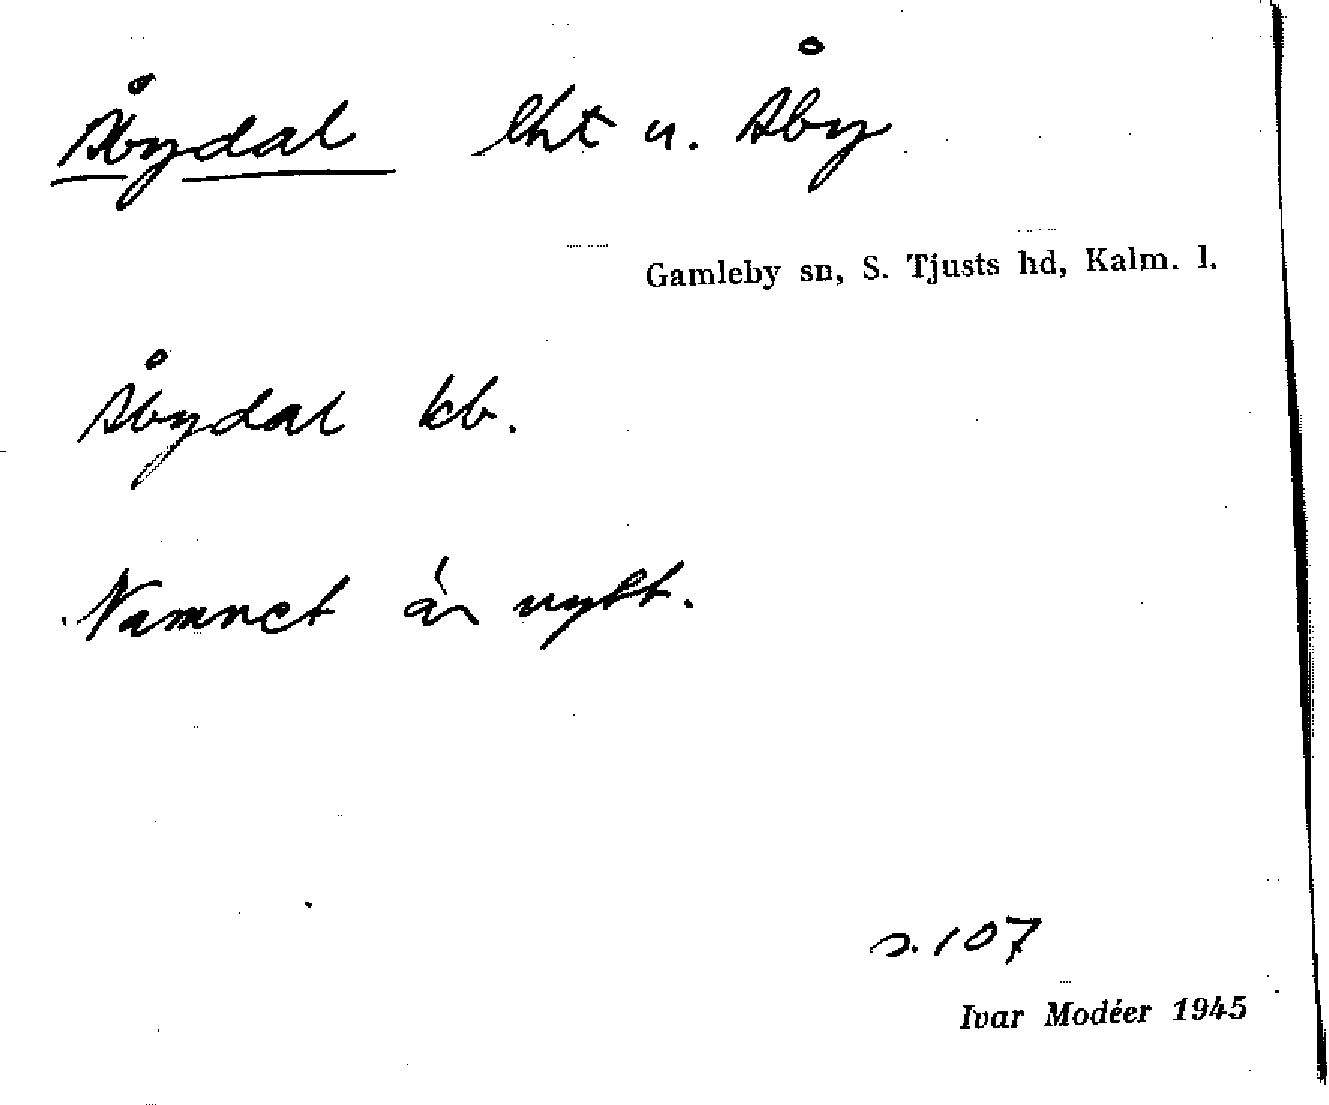 Åbydal lht u. Åby
Gamleby sn, S. Tjusts hd, Kalm. l.
Åbydal kb.
Namnet är nytt.
s. 107
Ivar Modéer 1945